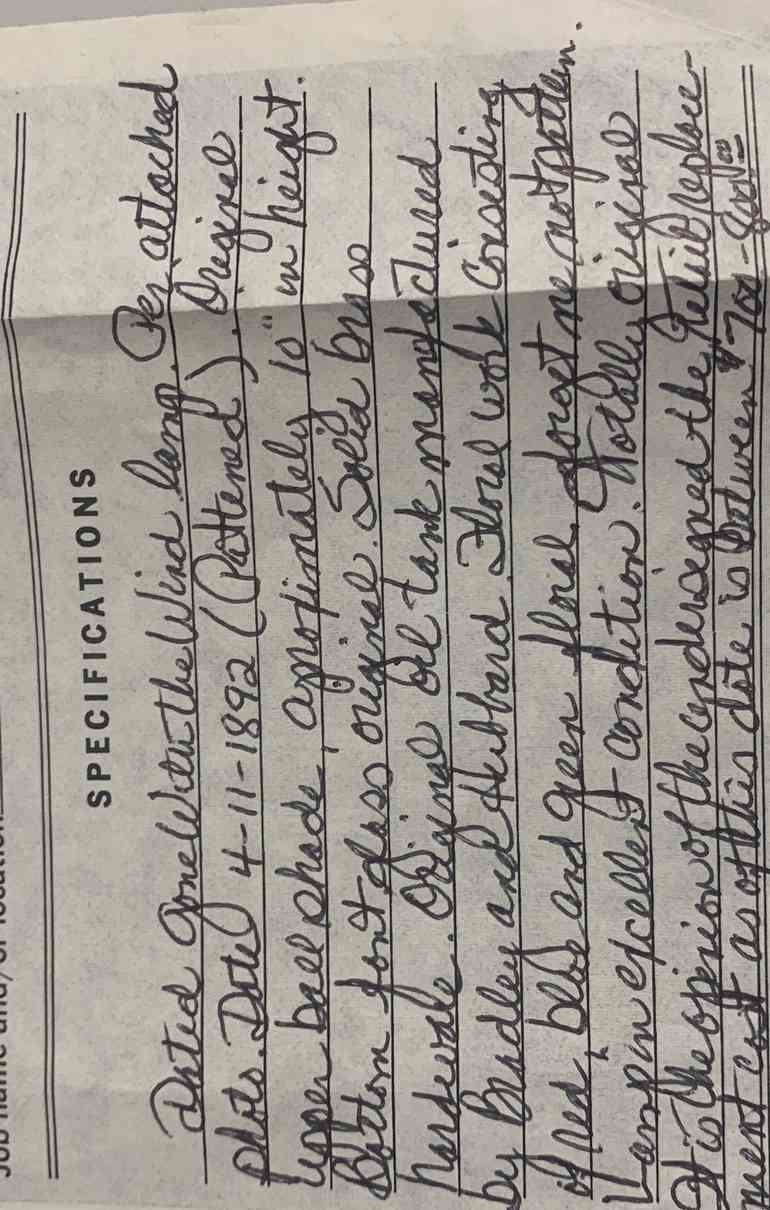 SPECIFICATIONS
Dated Gone With the Wind lamp. Per attached
photo. Date 4-11-1892 (Pattened). Original
upper ball shade, approximately 10" in height.
Bottom font glass original. Solid brass
hardware. Original oil tank manufactured
by Bradley and Hubbard. Floral work consisting
of red, blue and green florial, forget me not pattern.
Lamp in excellent condition. Totally original
It is the opinion of the undersigned the Retail replace-
ment cost as of this date is between $700-